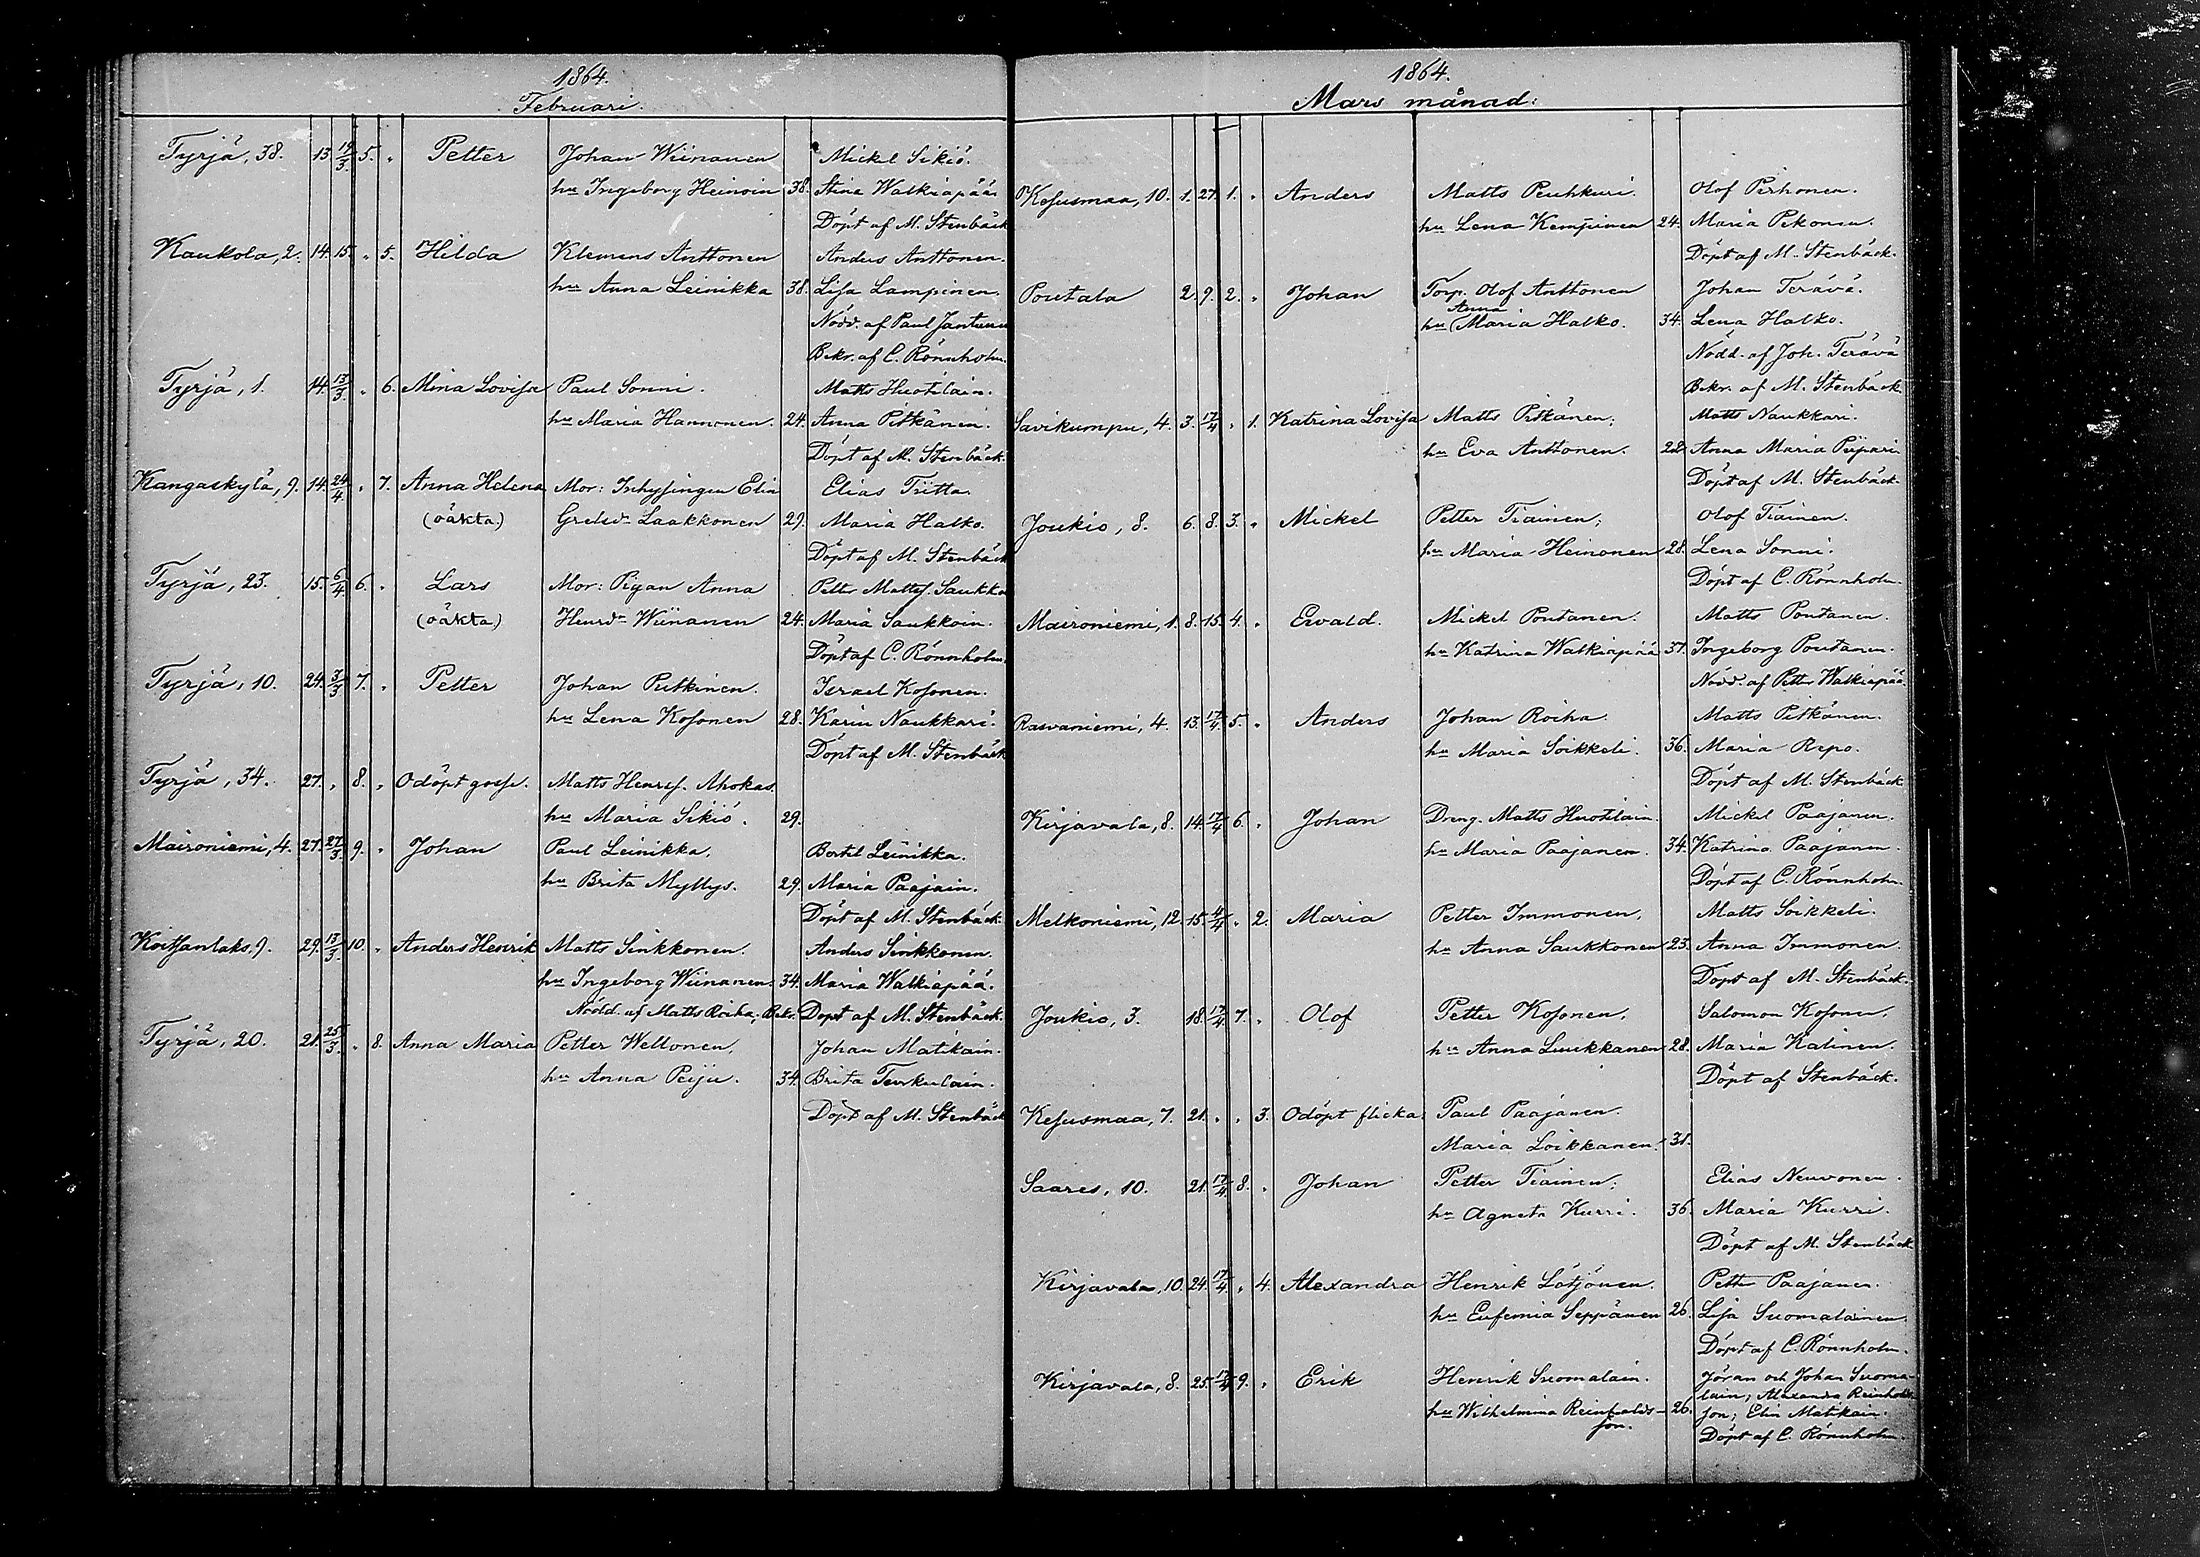 1864.
Februari.
Tyrjä, 38. 13. 19/3 5. „ Petter Johan Wiinanen Mickel Sikiö.
hu Ingeborg Heinoin 38. Stina Walkiapää
Döpt af M. Stenbäck
Kaukola, 2. 14. 15. „ 5. Hilda Klemens Anttonen Anders Anttonen.
hu Anna Leinikka 38. Lisa Lampinen.
Nödd. af Paul Jantunen
Bekr. af C. Rönnholm.
Tyrjä, 1. 14. 13/3 „ 6. Mina Lovisa Paul Sonni. Matts Huotilain.
hu Maria Hannonen. 24. Anna Pitkänen.
Döpt af M. Stenbäck.
Kangaskylä, 9. 14. 24/4 „ 7. Anna Helena Mor: Inhysingen Elin Elias Tiitta.
(oäkta) Grelsdr Laakkonen 29. Maria Halko.
Döpt af M. Stenbäck
Tyrjä, 23. 15. 6/4 6. „ Lars Mor: Pigan Anna Petter Mattss. Saukko
(oäkta) Henrdr Wiinanen 24. Maria Saukkoin.
Döpt af C. Rönnholm.
Tyrjä, 10. 24. 3/3 7. „ Petter Johan Putkinen. Israel Kosonen.
hu Lena Kosonen 28. Karin Naukkari.
Döpt af M. Stenbäck
Tyrjä, 34. 27. „ 8. „ Odöpt gosse. Matts Henrss. Ahokas.
hu Maria Sikiö. 29.
Maironiemi, 4. 27. 27/3 9. „ Johan Paul Leinikka, Bertil Leinikka.
hu Brita Myllys. 29. Maria Paajain.
Döpt af M. Stenbäck.
Koitsanlaks. 9. 29. 13/3 10. „ Anders Henrik Matts Sinkkonen. Anders Sinkkonen.
hu Ingeborg Wiinanen. 34. Maria Walkiapää.
Nödd. af Matts Roiha; Bekr. Döpt af M. Stenbäck.
Tyrjä, 20. 21. 25/3 „ 8. Anna Maria Petter Weltonen, Johan Matikain.
hu Anna Peiju. 34. Brita Terskulain.
Döpt af M. Stenbäck
1864.
Mars månad.
Kesusmaa, 10. 1. 27. 1. „ Anders Matts Peuhkuri. Olof Perhonen.
hu Lena Kempinen 24. Maria Pekonen.
Döpt af M. Stenbäck.
Poutala 2. 9. 2. „ Johan Torp. Olof Anttonen Johan Terävä.
Anna
hu Maria Halko. 34. Lena Halko.
Nödd. af Joh. Terävä
Bekr. af M. Stenbäck
Savikumpu, 4. 3. 17/4 „ 1. Katrina Lovisa Matts Pitkänen; Matts Naukkari.
hu Eva Anttonen. 28. Anna Maria Piipari
Döpt af M. Stenbäck
Joukio, 8. 6. 8. 3. „ Mickel Petter Tiainen; Olof Tiainen.
hu Maria Heinonen 28. Lena Sonni.
Döpt af C. Rönnholm.
Maironiemi, 1. 8. 15. 4. „ Ewald. Mickel Poutanen. Matts Poutanen.
hu Katrina Walkiapää 37. Ingeborg Poutanen.
Nödd. af Petter Walkiapää.
Rasvaniemi, 4. 13. 17/4 5. „ Anders Johan Roiha. Matts Pitkänen.
hu Maria Soikkeli. 36. Maria Repo.
Döpt af M. Stenbäck
Kirjavala, 8. 14. 17/4 6. „ Johan Dreng. Matts Huotilain. Mickel Paajanen.
hu Maria Paajanen. 34. Katrina Paajanen.
Döpt af C. Rönnholm.
Melkoniemi, 12. 15. 4/4 „ 2. Maria Petter Immonen, Matts Soikkeli.
hu Anna Saukkonen 23. Anna Immonen.
Döpt af M. Stenbäck.
Joukio, 3. 18. 17/4 7. „ Olof Petter Kosonen, Salomon Kosonen,
hu Anna Luukkanen 28. Maria Katinen.
Döpt af Stenbäck.
Kesusmaa, 7. 21. „ „ 3. Odöpt flicka. Paul Paajanen.
Maria Loikkanen. 31.
Saares, 10. 21. 17/4 8. „ Johan Petter Tiainen; Elias Neuvonen.
hu Agneta Kurri. 36. Maria Kurri.
Döpt af M. Stenbäck
Kirjavala, 10. 24. 17/4 „ 4. Alexandra Henrik Lötjönen. Petter Paajanen.
hu Eufemia Seppänen 26. Lisa Suomalainen.
Döpt af C. Rönnholm.
Kirjavala, 8. 25. 17/4 9. „ Erik Henrik Suomalain. Jöran och Johan Suoma-
lain; Alexandra Reinholds-
hu Wilhelmina Reinholds- 26. son; Elin Matikain.
son. Döpt af C. Rönnholm